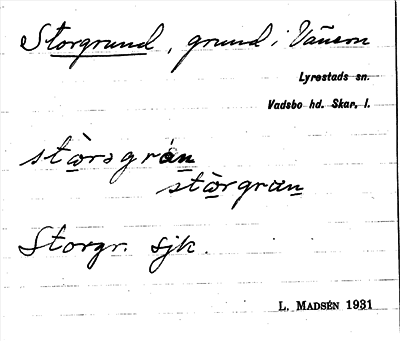 Storgrund, grund i Vänern
Lyrestads sn.
Vadsbo hd. Skar. l.
stòrəgrán
stòrgran
Storgr. sjk.
L. MADSÉN 1931